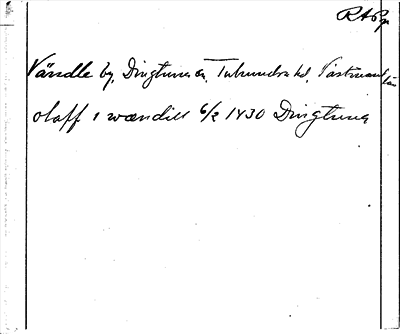 RAPp
Vändle by, Dingtuna sn, Tuhundra hd, Västmanl. län
olaff i wændill 6/2 1430 Dingtuna